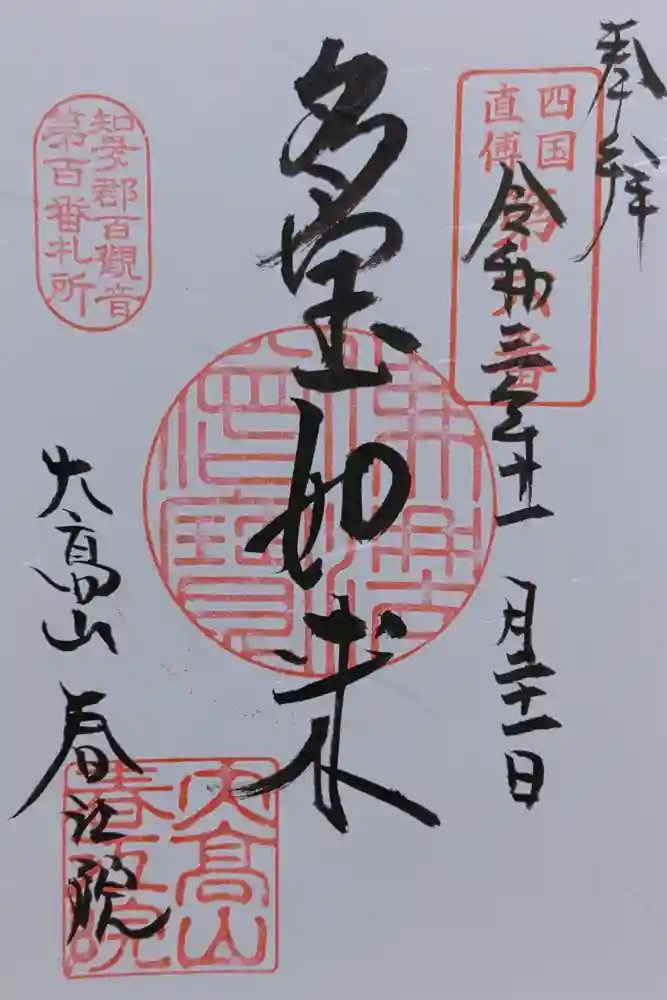 奉拝
四国
直傅
第
番
令和三年十一月二十一日
多宝如来
知多郡百觀音
第百番札所
大高山 春江院
大高山
春江院